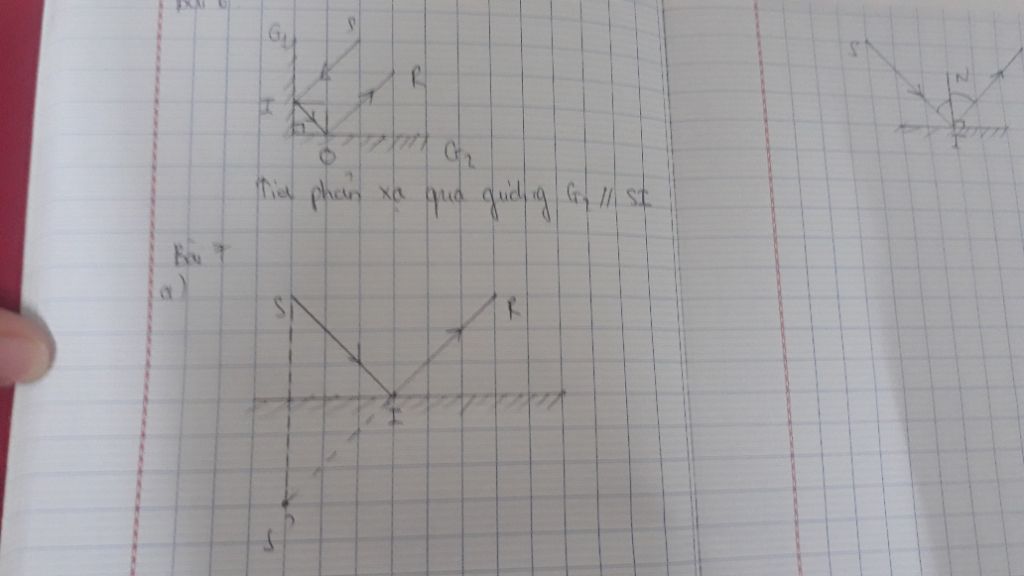 Bài 6
G₁
S
R
I
O
G₂
Tia phản xạ qua gương G₂ // SI
Bài 7
a)
S
R
I
S'
S
N
I